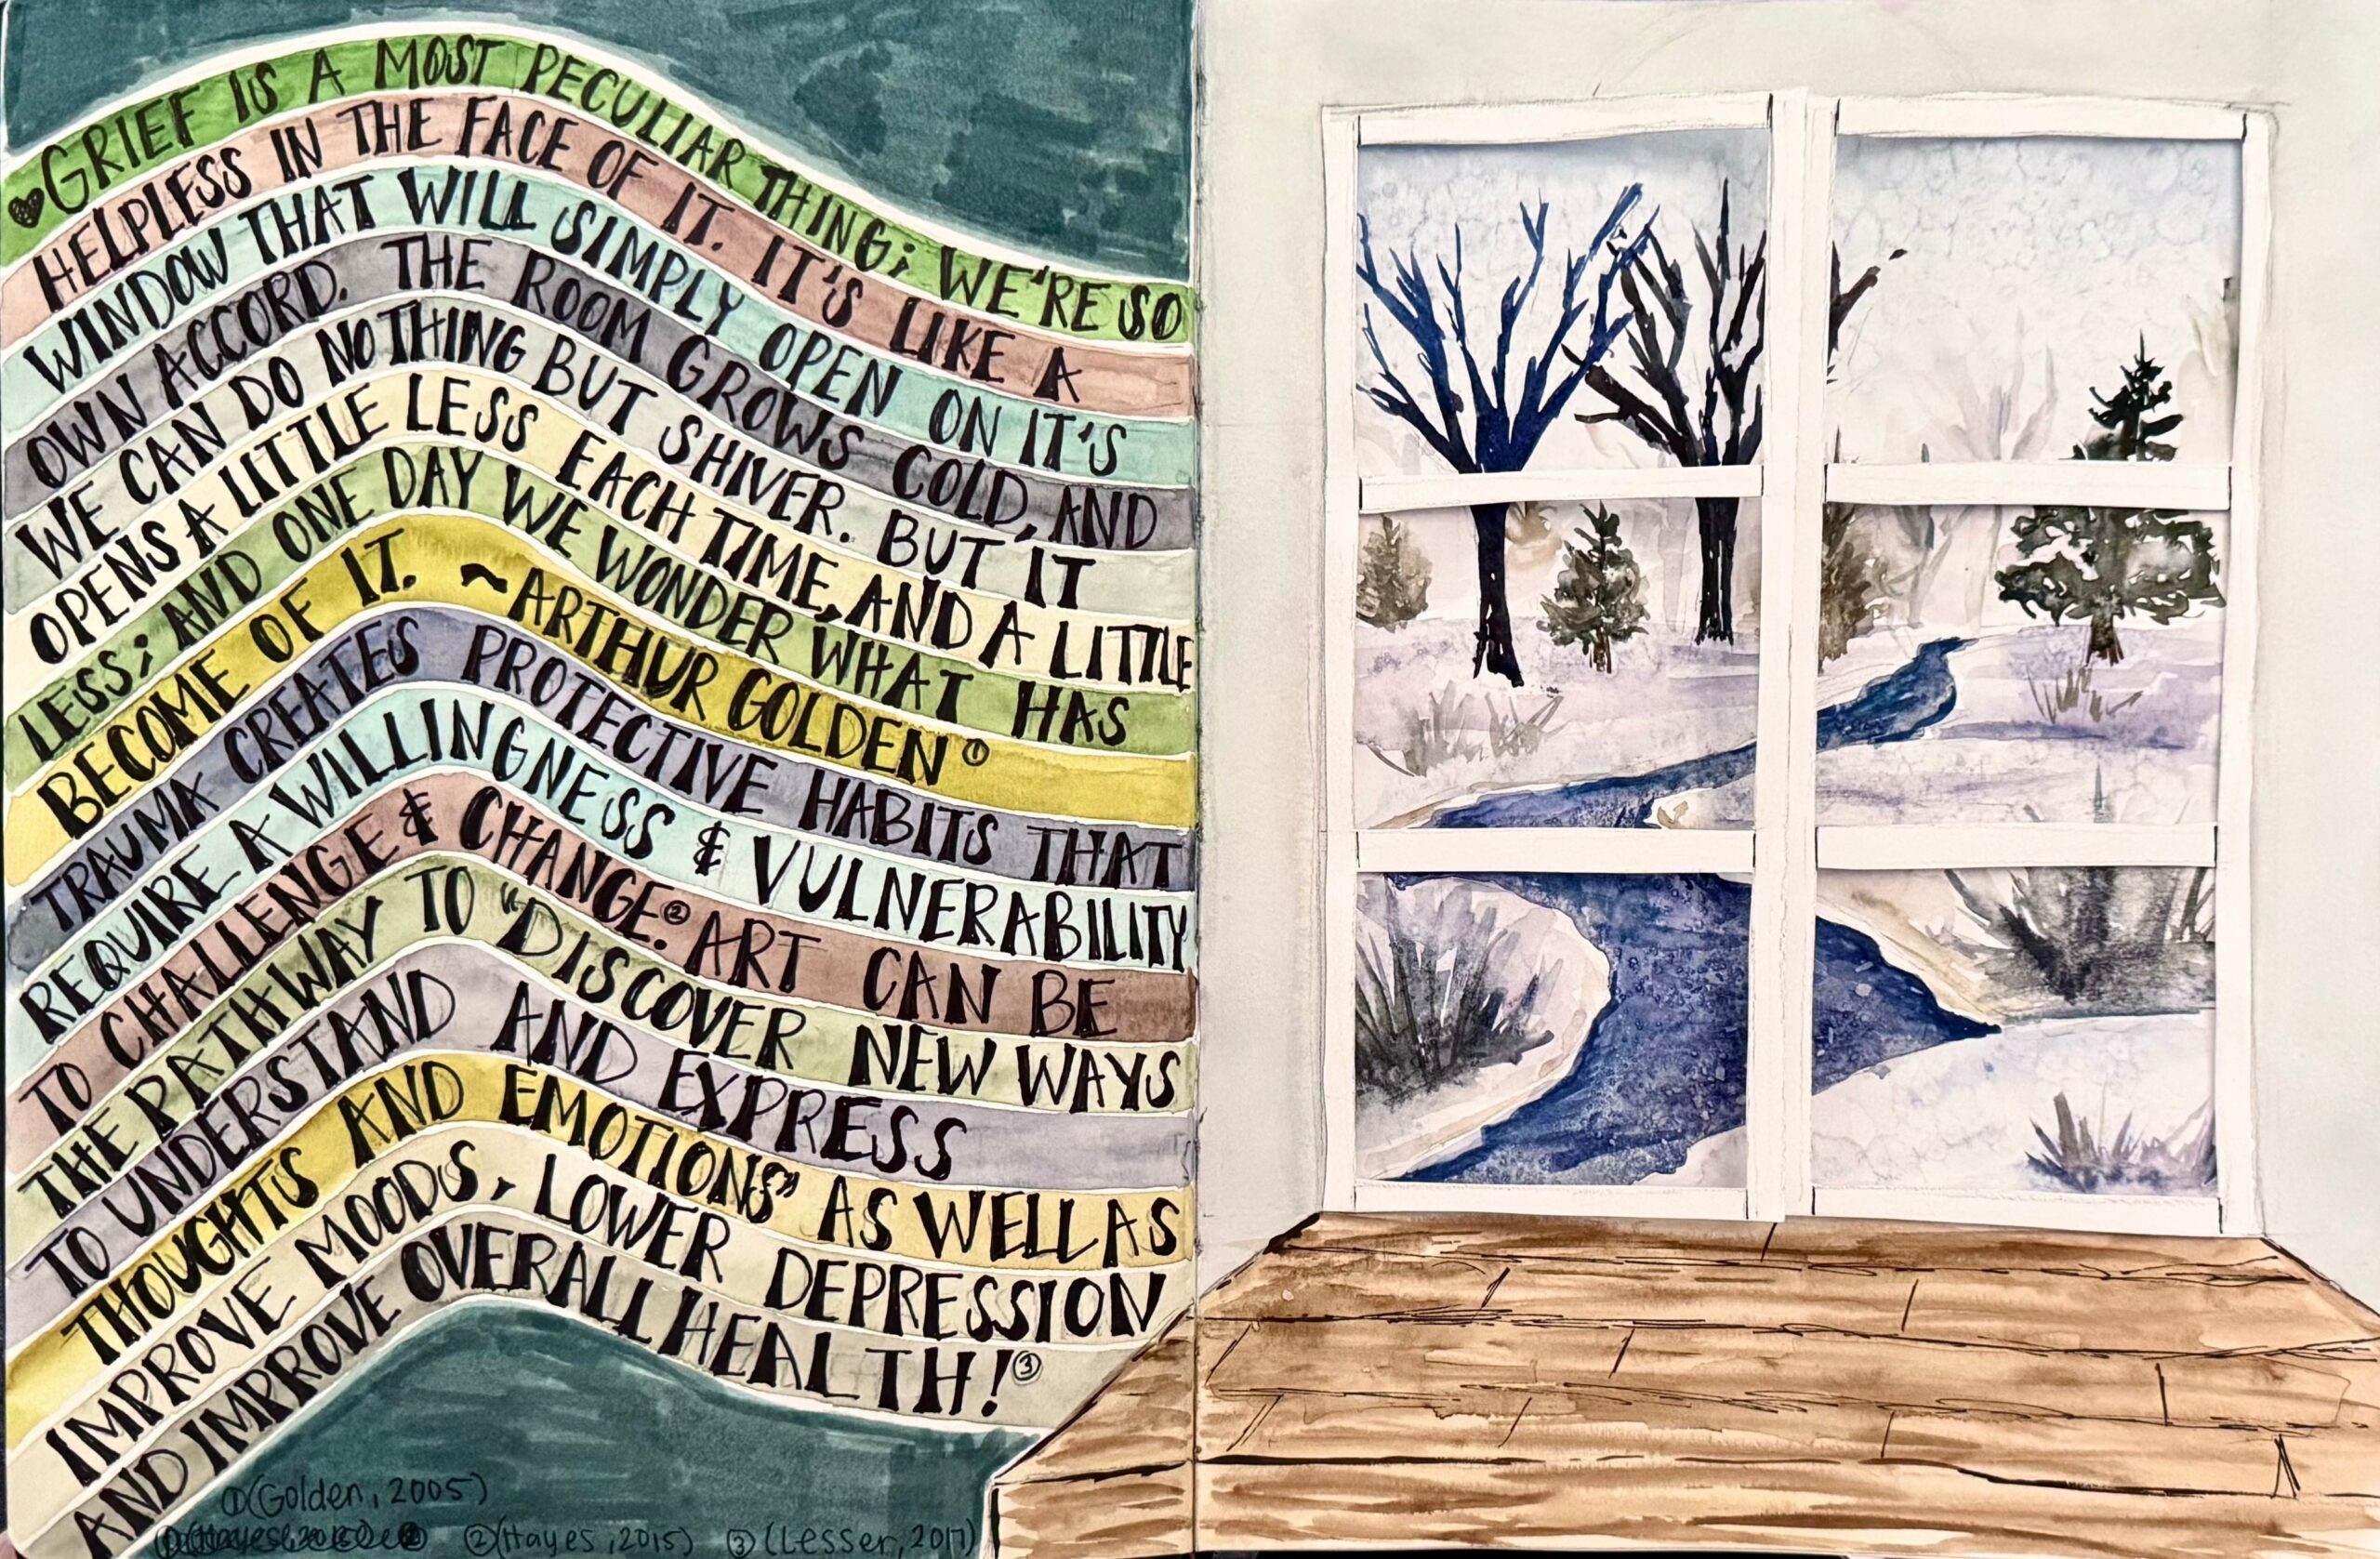 ♥GRIEF IS A MOST PECULIAR THING; WE'RE SO
HELPLESS IN THE FACE OF IT. IT'S LIKE A
WINDOW THAT WILL SIMPLY OPEN ON IT'S
OWN ACCORD. THE ROOM GROWS COLD, AND
WE CAN DO NOTHING BUT SHIVER. BUT IT
OPENS A LITTLE LESS EACH TIME, AND A LITTLE
LESS; AND ONE DAY WE WONDER WHAT HAS
BECOME OF IT. ~ARTHUR GOLDEN ①
TRAUMA CREATES PROTECTIVE HABITS THAT
REQUIRE A WILLINGNESS & VULNERABILITY
TO CHALLENGE & CHANGE.② ART CAN BE
THE PATHWAY TO "DISCOVER NEW WAYS
TO UNDERSTAND AND EXPRESS
THOUGHTS AND EMOTIONS" AS WELL AS
IMPROVE MOODS, LOWER DEPRESSION
AND IMPROVE OVERALL HEALTH!③
①(Golden, 2005)
②(Hayes, 2015) ③(Lesser, 2017)